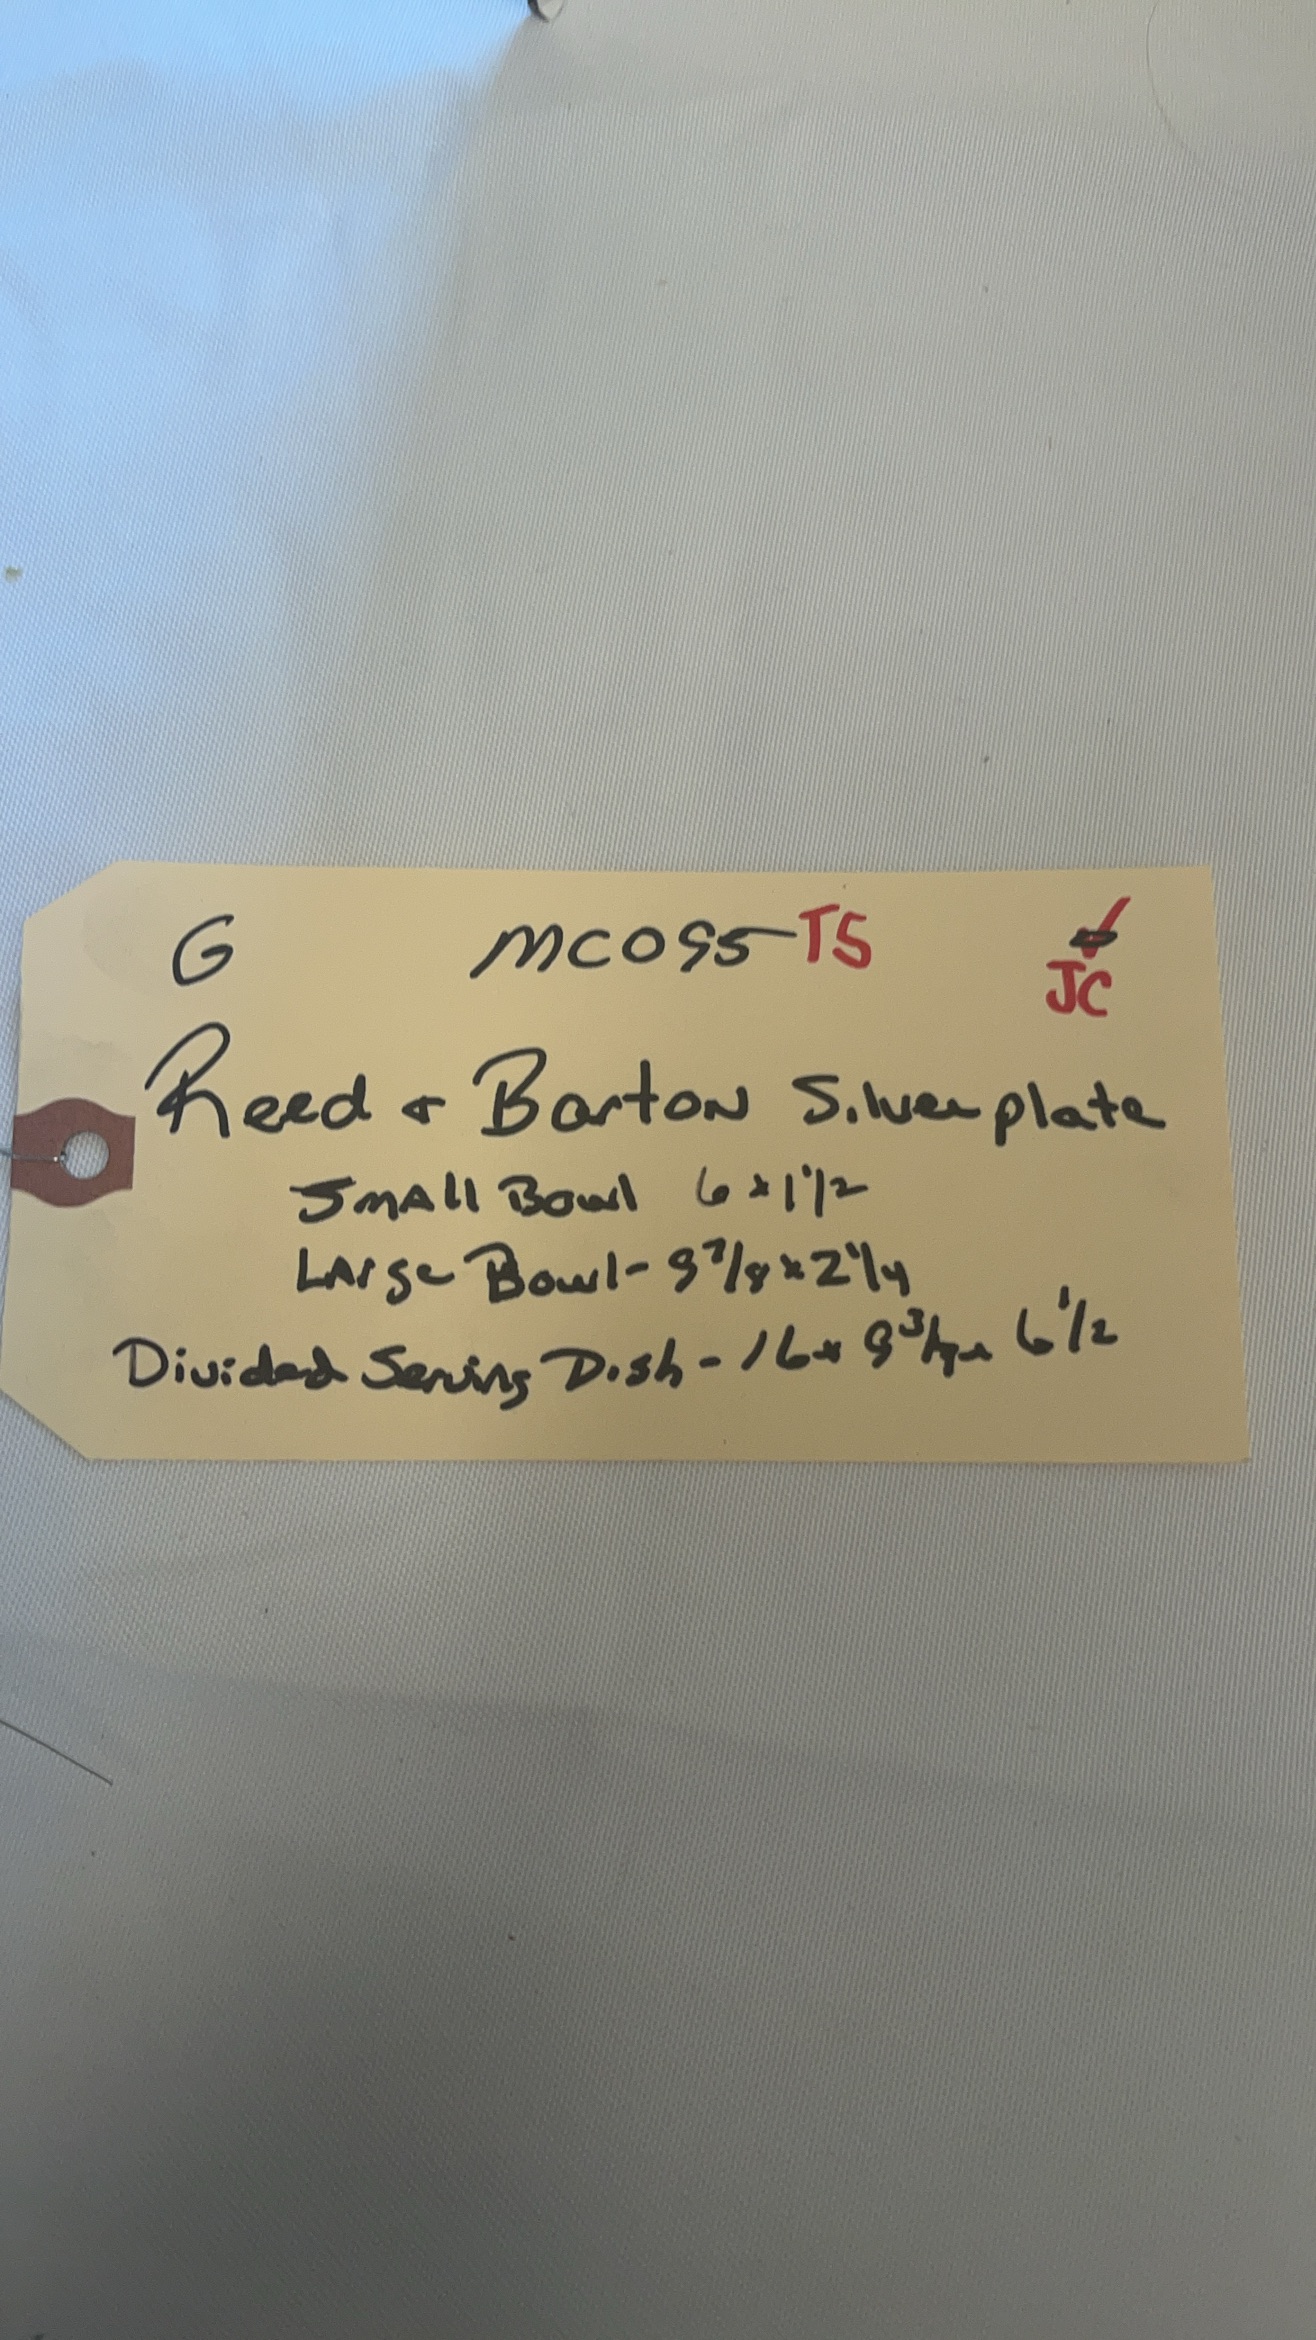 G MC095-TS JC
Reed & Barton Silverplate
Small Bowl 6 x 1 1/2
Large Bowl - 9 7/8 x 2 1/4
Divided Serving Dish - 16 x 6 1/2